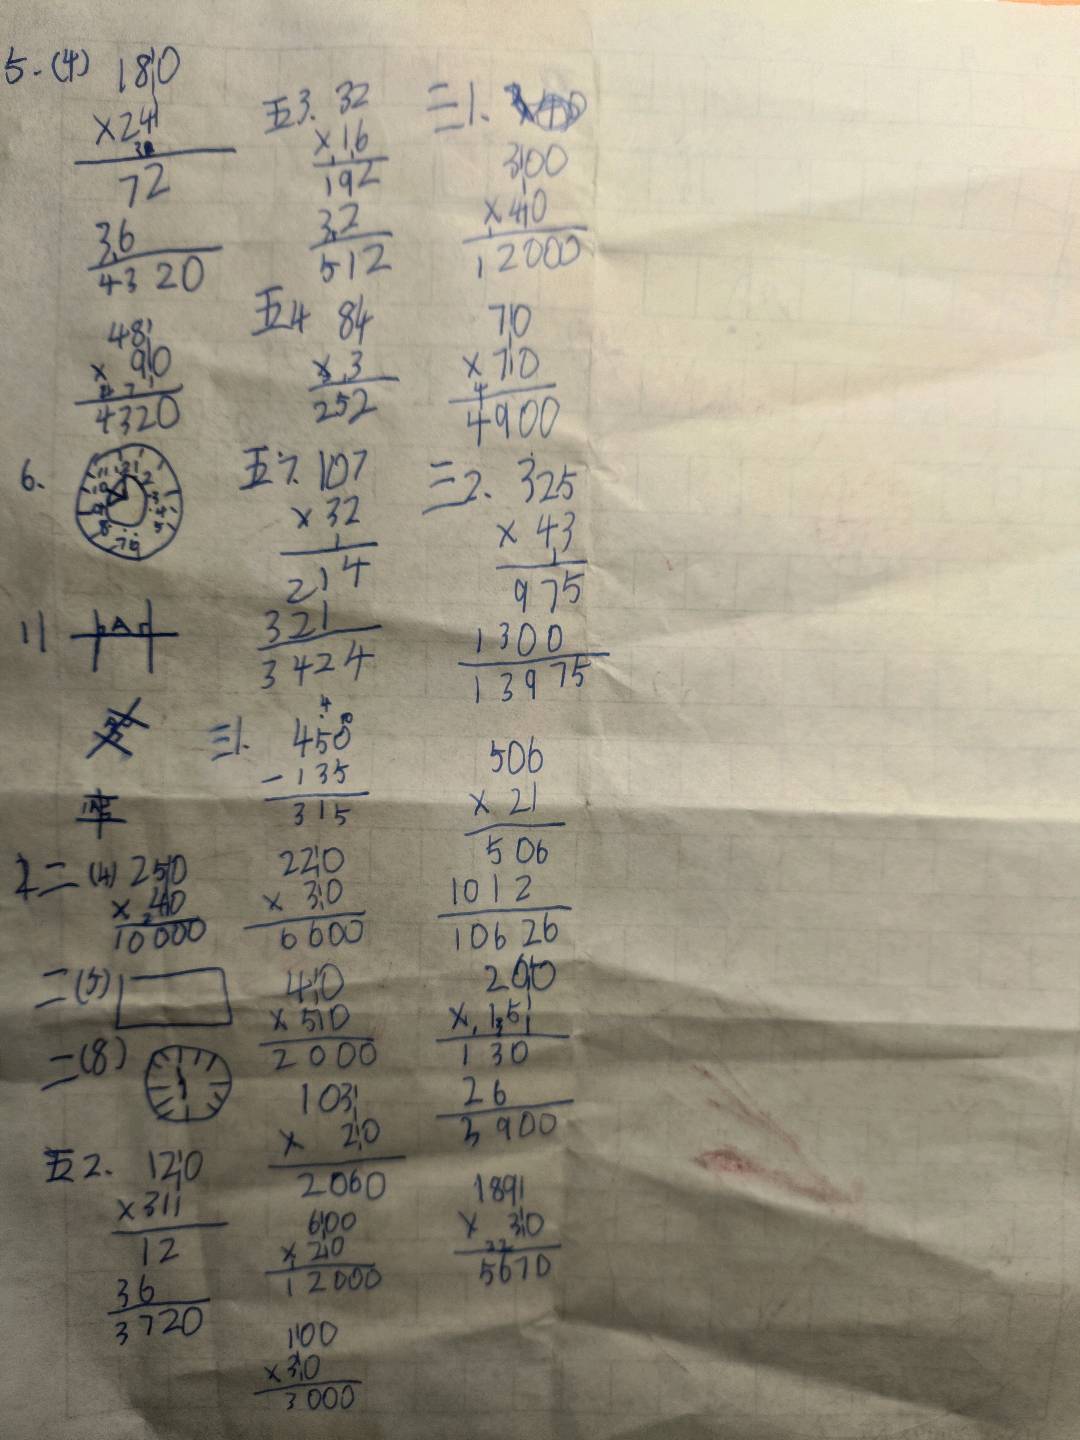 5.(4) 180
×24
72
36
4320
48
× 90
4320
6.
11
2二(4) 250
× 40
10000
二(5)
二(8)
五2. 120
×31
12
36
3720
五3. 32
×16
192
32
512
五4 84
×3
252
五7. 107
×32
214
321
3424
三1. 450
-135
315
220
× 30
6600
40
×50
2000
103
× 20
2060
600
×20
12000
100
×30
3000
三1.
300
×40
12000
70
×70
4900
三2. 325
× 43
975
1300
13975
506
× 21
506
1012
10626
×15
130
26
3900
189
× 30
5670